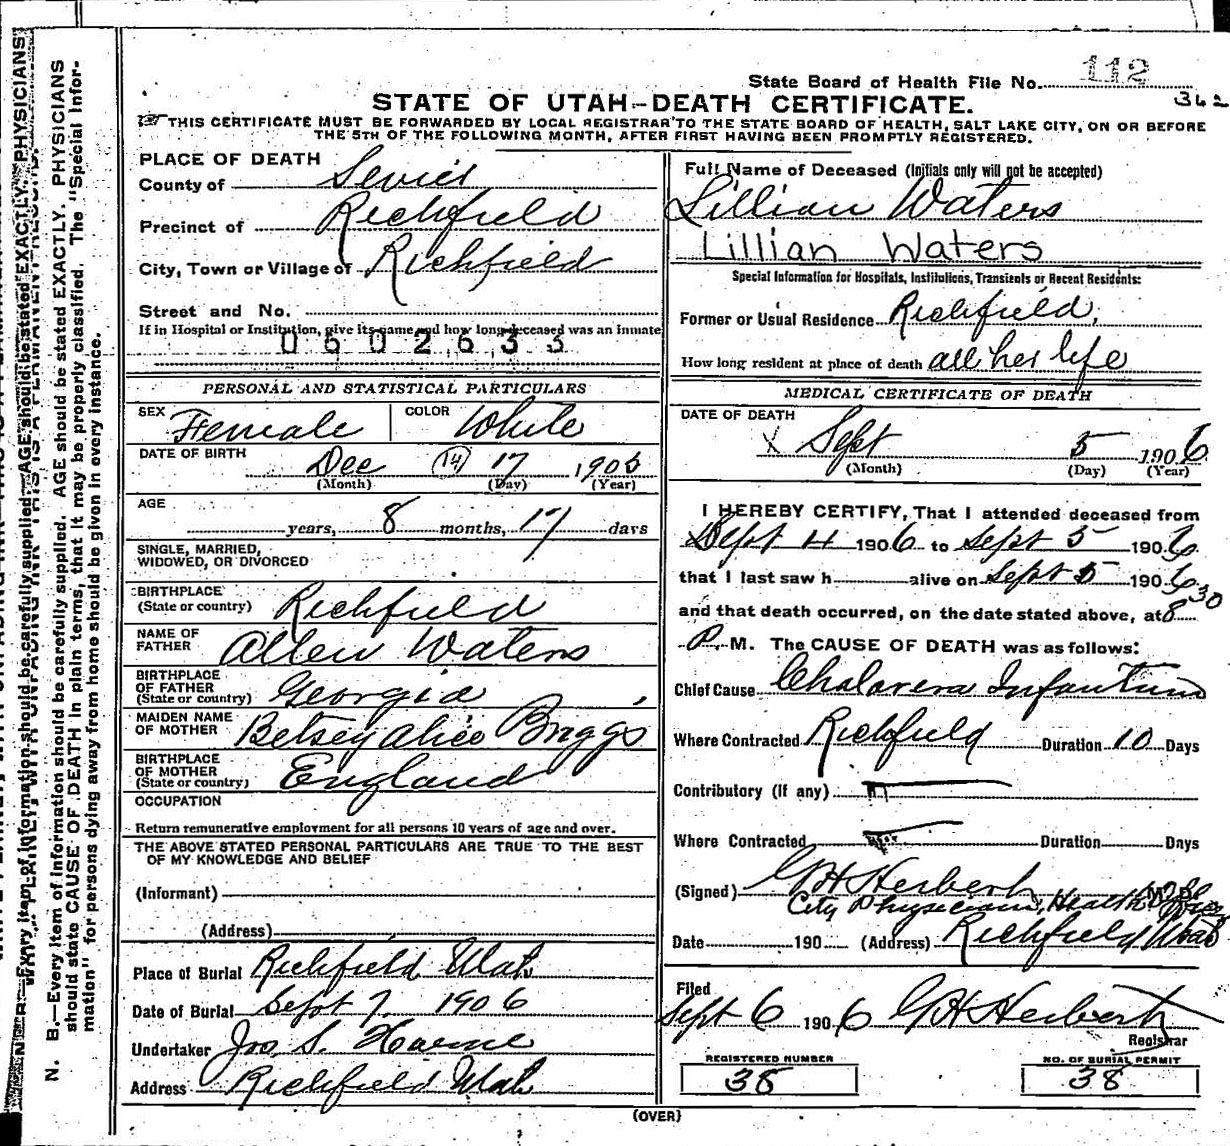 State Board of Health File No. 112
342
STATE OF UTAH-DEATH CERTIFICATE.
THIS CERTIFICATE MUST BE FORWARDED BY LOCAL REGISTRAR TO THE STATE BOARD OF HEALTH, SALT LAKE CITY, ON OR BEFORE
THE 5TH OF THE FOLLOWING MONTH, AFTER FIRST HAVING BEEN PROMPTLY REGISTERED.
PLACE OF DEATH
County of Sevier
Precinct of Richfield
City, Town or Village of Richfield
Street and No.
If in Hospital or Institution, give its name and how long deceased was an inmate
0602633
PERSONAL AND STATISTICAL PARTICULARS
SEX Female COLOR White
DATE OF BIRTH Dec (14) 17 1905
(Month) (Day) (Year)
AGE
years, 8 months, 17 days
SINGLE, MARRIED,
WIDOWED, OR DIVORCED
BIRTHPLACE
(State or country) Richfield
NAME OF
FATHER Allen Waters
BIRTHPLACE
OF FATHER
(State or country) Georgia
MAIDEN NAME
OF MOTHER Betsey Alice Briggs
BIRTHPLACE
OF MOTHER
(State or country) England
OCCUPATION
Return remunerative employment for all persons 10 years of age and over.
THE ABOVE STATED PERSONAL PARTICULARS ARE TRUE TO THE BEST
OF MY KNOWLEDGE AND BELIEF
(Informant)
(Address)
Place of Burial Richfield Utah
Date of Burial Sept 7, 1906
Undertaker Jos. S. Horne
Address Richfield Utah
Full Name of Deceased (Initials only will not be accepted)
Lillian Waters
Lillian Waters
Special Information for Hospitals, Institutions, Transients or Recent Residents:
Former or Usual Residence Richfield,
How long resident at place of death all her life
MEDICAL CERTIFICATE OF DEATH
DATE OF DEATH
X Sept 5 1906
(Month) (Day) (Year)
I HEREBY CERTIFY, That I attended deceased from
Sept 4 1906 to Sept 5 1906
that I last saw h alive on Sept 5 1906
and that death occurred, on the date stated above, at 8 30
P. M. The CAUSE OF DEATH was as follows:
Chief Cause Cholarera Infantum
Where Contracted Richfield Duration 10 Days
Contributory (if any)
Where Contracted Duration Days
(Signed) G H Herbert M. D.
City Physician, Health
Date 190 (Address) Richfield Utah
Filed
Sept 6 1906 G H Herbert
Registrar
REGISTERED NUMBER
38
NO. OF BURIAL PERMIT
38
(OVER)
N. B.—Every item of information should be carefully supplied. AGE should be stated EXACTLY. PHYSICIANS
should state CAUSE OF DEATH in plain terms, that it may be properly classified. The "Special Infor-
mation" for persons dying away from home should be given in every instance.